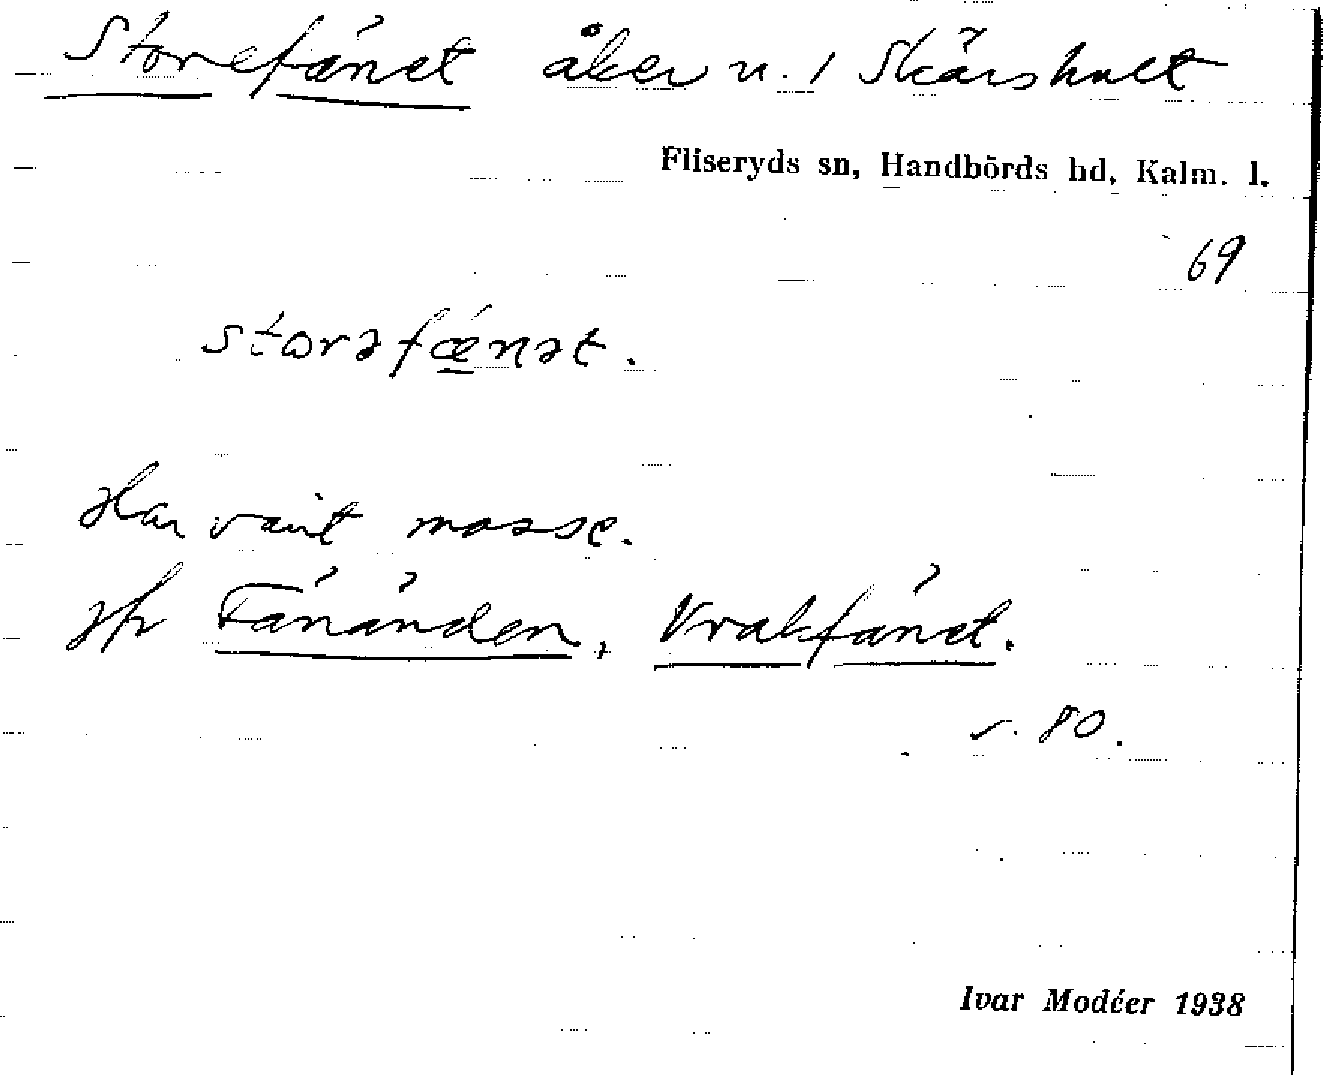 Storefänet åker n. 1 Skärshult
Fliseryds sn, Handbörds hd, Kalm. l.
69
storəfænət.
Har varit mosse.
Jfr Fänänden, Vrakfänet.
s. 80.
Ivar Modéer 1938